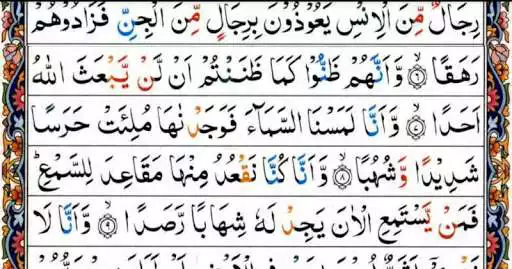 رِجَالٌ مِّنَ الْاِنْسِ يَعُوْذُوْنَ بِرِجَالٍ مِّنَ الْجِنِّ فَزَادُوْهُمْ
رَهَقًا ۙ۶ وَّاَنَّهُمْ ظَنُّوْا كَمَا ظَنَنْتُمْ اَنْ لَّنْ يَّبْعَثَ اللّٰهُ
اَحَدًا ۙ۷ وَّاَنَّا لَمَسْنَا السَّمَآءَ فَوَجَدْنٰهَا مُلِئَتْ حَرَسًا
شَدِيْدًا وَّشُهُبًا ۙ۸ وَّاَنَّا كُنَّا نَقْعُدُ مِنْهَا مَقَاعِدَ لِلسَّمْعِ ؕ
فَمَنْ يَّسْتَمِعِ الْاٰنَ يَجِدْ لَهٗ شِهَابًا رَّصَدًا ۙ۹ وَّاَنَّا لَا